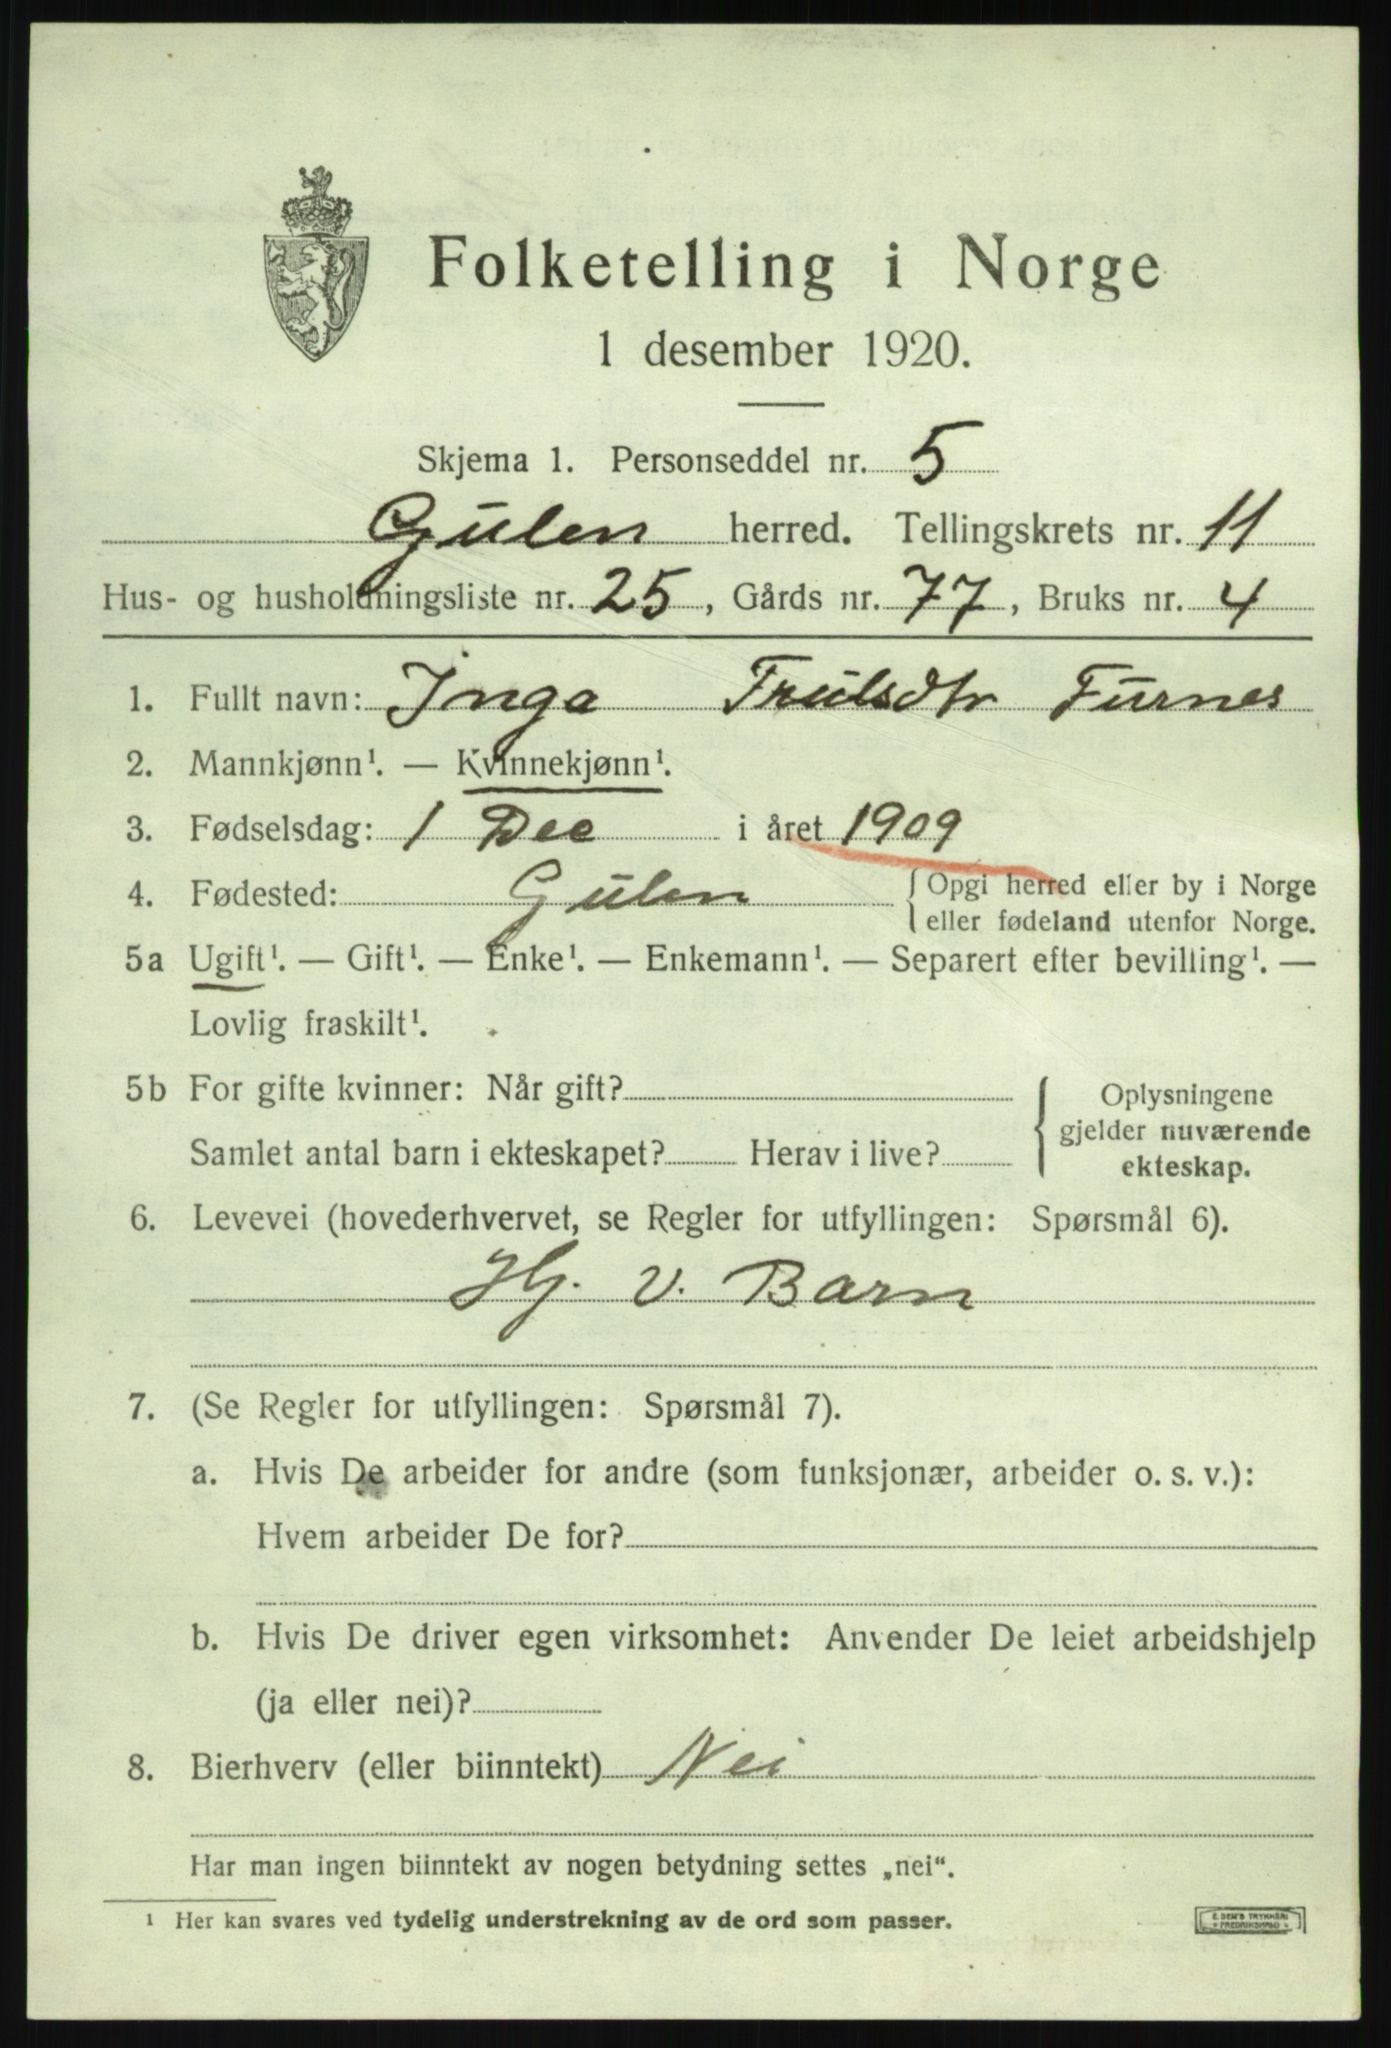 Folketelling i Norge
1 desember 1920.
Skjema 1. Personseddel nr. 5
Gulen herred. Tellingskrets nr. 11
Hus- og husholdningsliste nr. 25, Gårds nr. 77, Bruks nr. 4
1. Fullt navn: Inga Trulsdtr Furnes
2. Mannkjønn¹. — Kvinnekjønn¹.
3. Fødselsdag: 1 Dec i året 1909
4. Fødested: Gulen { Opgi herred eller by i Norge
eller fødeland utenfor Norge.
5a Ugift¹. — Gift¹. — Enke¹. — Enkemann¹. — Separert efter bevilling¹. —
Lovlig fraskilt¹.
5b For gifte kvinner: Når gift?
Samlet antal barn i ekteskapet? Herav i live?
{ Oplysningene
gjelder nuværende
ekteskap.
6. Levevei (hovederhvervet, se Regler for utfyllingen: Spørsmål 6).
Hj. v. Barn
7. (Se Regler for utfyllingen: Spørsmål 7).
a. Hvis De arbeider for andre (som funksjonær, arbeider o. s. v.):
Hvem arbeider De for?
b. Hvis De driver egen virksomhet: Anvender De leiet arbeidshjelp
(ja eller nei)?
8. Bierhverv (eller biinntekt) Nei
Har man ingen biinntekt av nogen betydning settes „nei“.
¹ Her kan svares ved tydelig understrekning av de ord som passer.
E. SEM'S TRYKKERI
FREDRIKSHALD